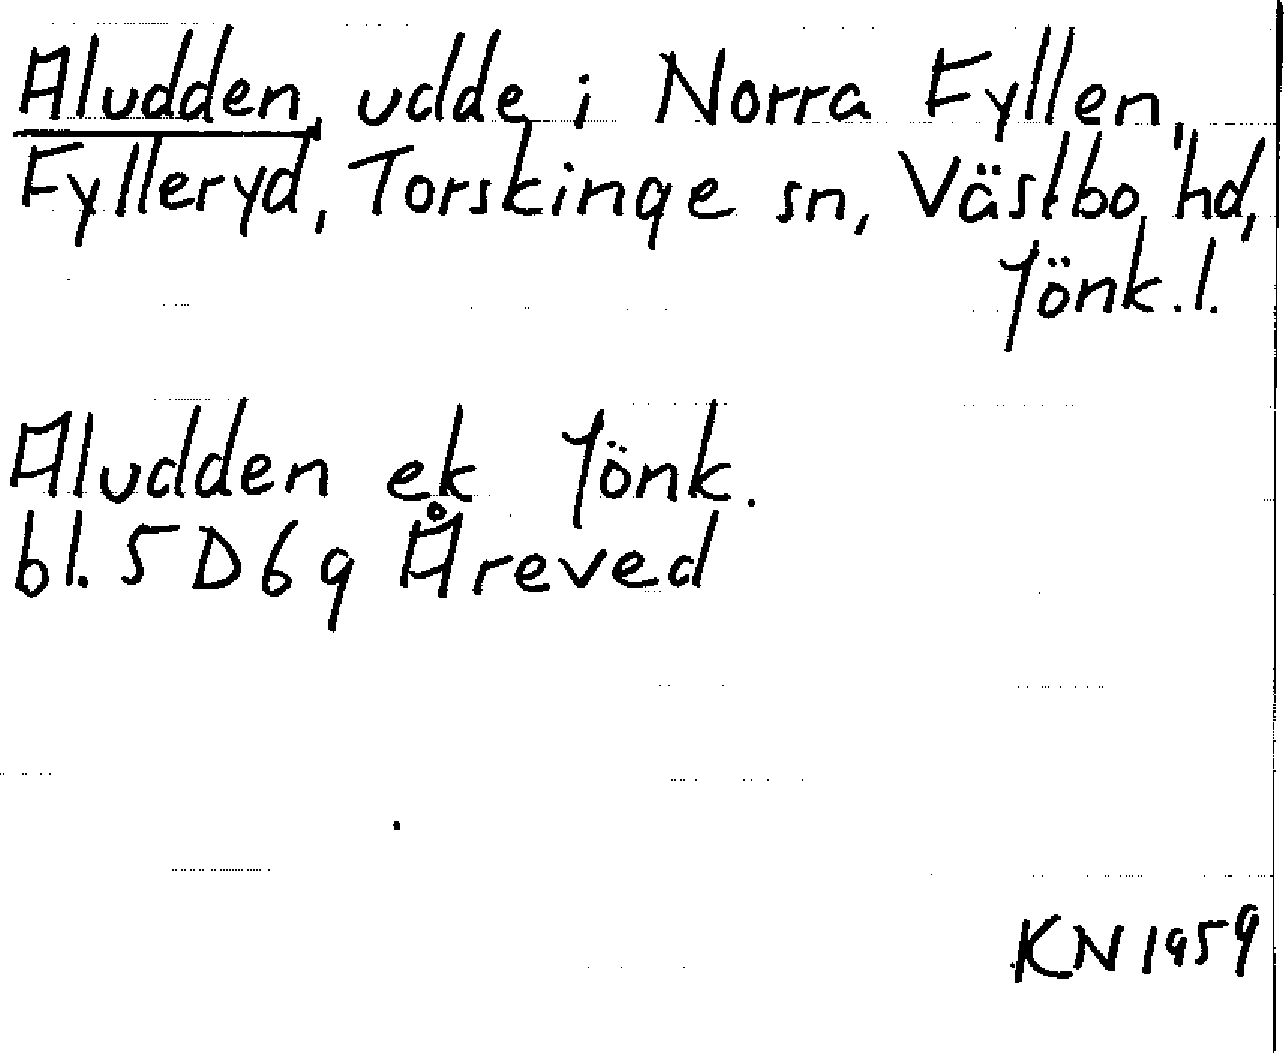 Aludden, udde i Norra Fyllen,
Fylleryd, Torskinge sn, Västbo hd,
Jönk.l.
Aludden ek Jönk.
bl. 5D6g Åreved
KN 1959